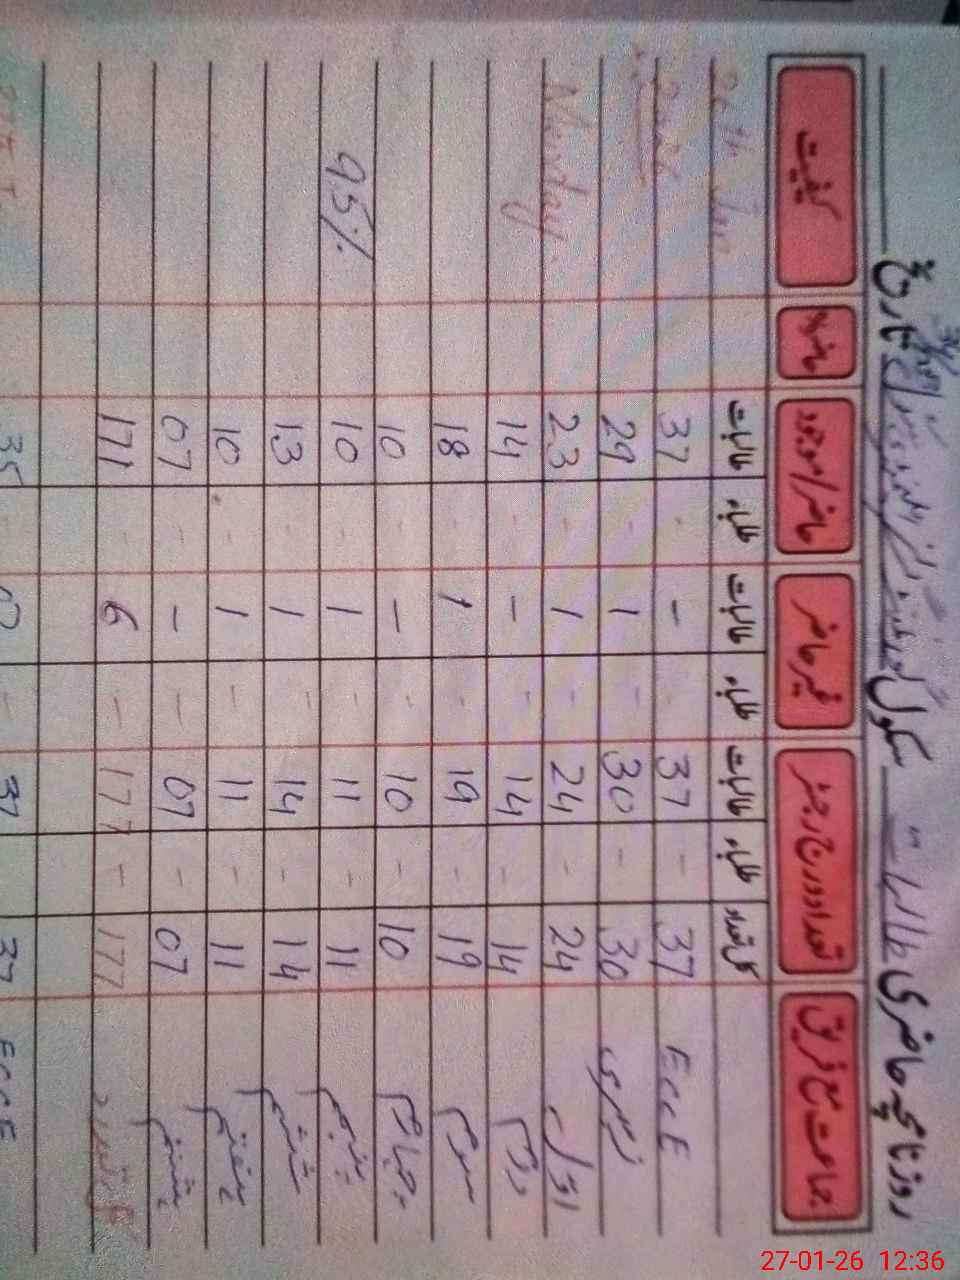 روزنامچہ حاضری طالبات سکول گورنمنٹ گرلز تاریخ
جماعت مع فریق تعداد درج رجسٹر غیر حاضر حاضر/موجود حاضر% کیفیت
کل تعداد طلباء طالبات طلباء طالبات طلباء طالبات
EccE 37 - 37 - - - 37 26th Jan
نرسری 30 - 30 - 1 - 29 2026
اوّل 24 - 24 - 1 - 23 Monday
دوم 14 - 14 - - - 14
سوم 19 - 19 - 1 - 18
چہارم 10 - 10 - - - 10
پنجم 11 - 11 - 1 - 10 95%
ششم 14 - 14 - 1 - 13
ہفتم 11 - 11 - 1 - 10
ہشتم 07 - 07 - - - 07
کل تعداد 177 - 177 - 6 - 171
EccE 37 37
27-01-26 12:36